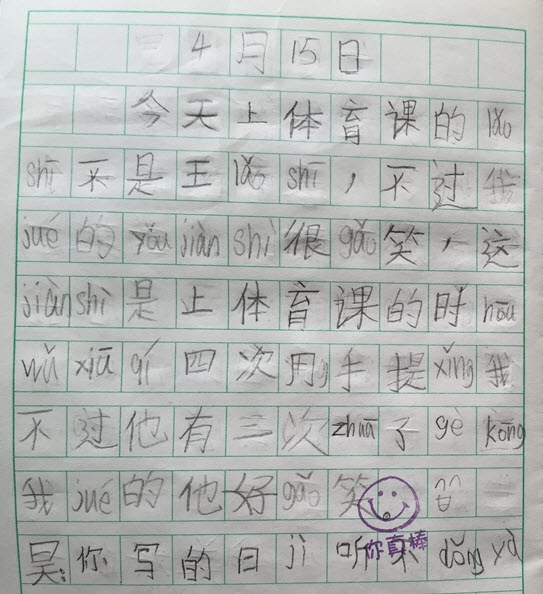 4月15日
今天上体育课的lǎo
shī不是王lǎo shī，不过我
jué的yǒu jiàn shì很gǎo笑，这
jiàn shì是上体育课的时hōu
wǔ xiū qí四次用手提xǐng我
不过他有三次zhuā了gè kōng
我jué的他好gǎo笑
你真棒
昊：你写的日jì听不dǒng yɑ̀